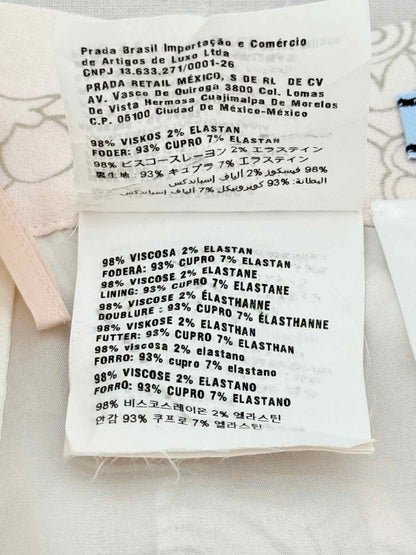 Prada Brasil Importação e Comércio
de Artigos de Luxo Ltda
CNPJ 13.633.271/0001-26
PRADA RETAIL MÉXICO, S DE RL DE CV
AV. Vasco De Quiroga 3800 Col. Lomas
De Vista Hermosa Cuajimalpa De Morelos
C.P. 05100 Ciudad De México-México
98% VISKOS 2% ELASTAN
FODER: 93% CUPRO 7% ELASTAN
98% ビスコースレーヨン 2% エラステイン
裏生地: 93% キュプラ 7% エラステイン
98% فيسكوز 2% ألياف إسباندكس
البطانة: 93% كوبرونيكل 7% ألياف إسباندكس
98% VISCOSA 2% ELASTAN
FODERA: 93% CUPRO 7% ELASTAN
98% VISCOSE 2% ELASTANE
LINING: 93% CUPRO 7% ELASTANE
98% VISCOSE 2% ÉLASTHANNE
DOUBLURE : 93% CUPRO 7% ÉLASTHANNE
98% VISKOSE 2% ELASTHAN
FUTTER: 93% CUPRO 7% ELASTHAN
98% viscosa 2% elastano
FORRO: 93% cupro 7% elastano
98% VISCOSE 2% ELASTANO
FORRO: 93% CUPRO 7% ELASTANO
98% 비스코스레이온 2% 엘라스틴
안감 93% 쿠프로 7% 엘라스틴